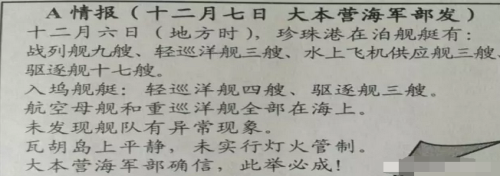 A 情报（十二月七日 大本营海军部发）
十二月六日（地方时），珍珠港在泊舰艇有：
战列舰九艘、轻巡洋舰三艘、水上飞机供应舰三艘、
驱逐舰十七艘。
入坞舰艇：轻巡洋舰四艘、驱逐舰三艘。
航空母舰和重巡洋舰全部在海上。
未发现舰队有异常现象。
瓦胡岛上平静，未实行灯火管制。
大本营海军部确信，此举必成！